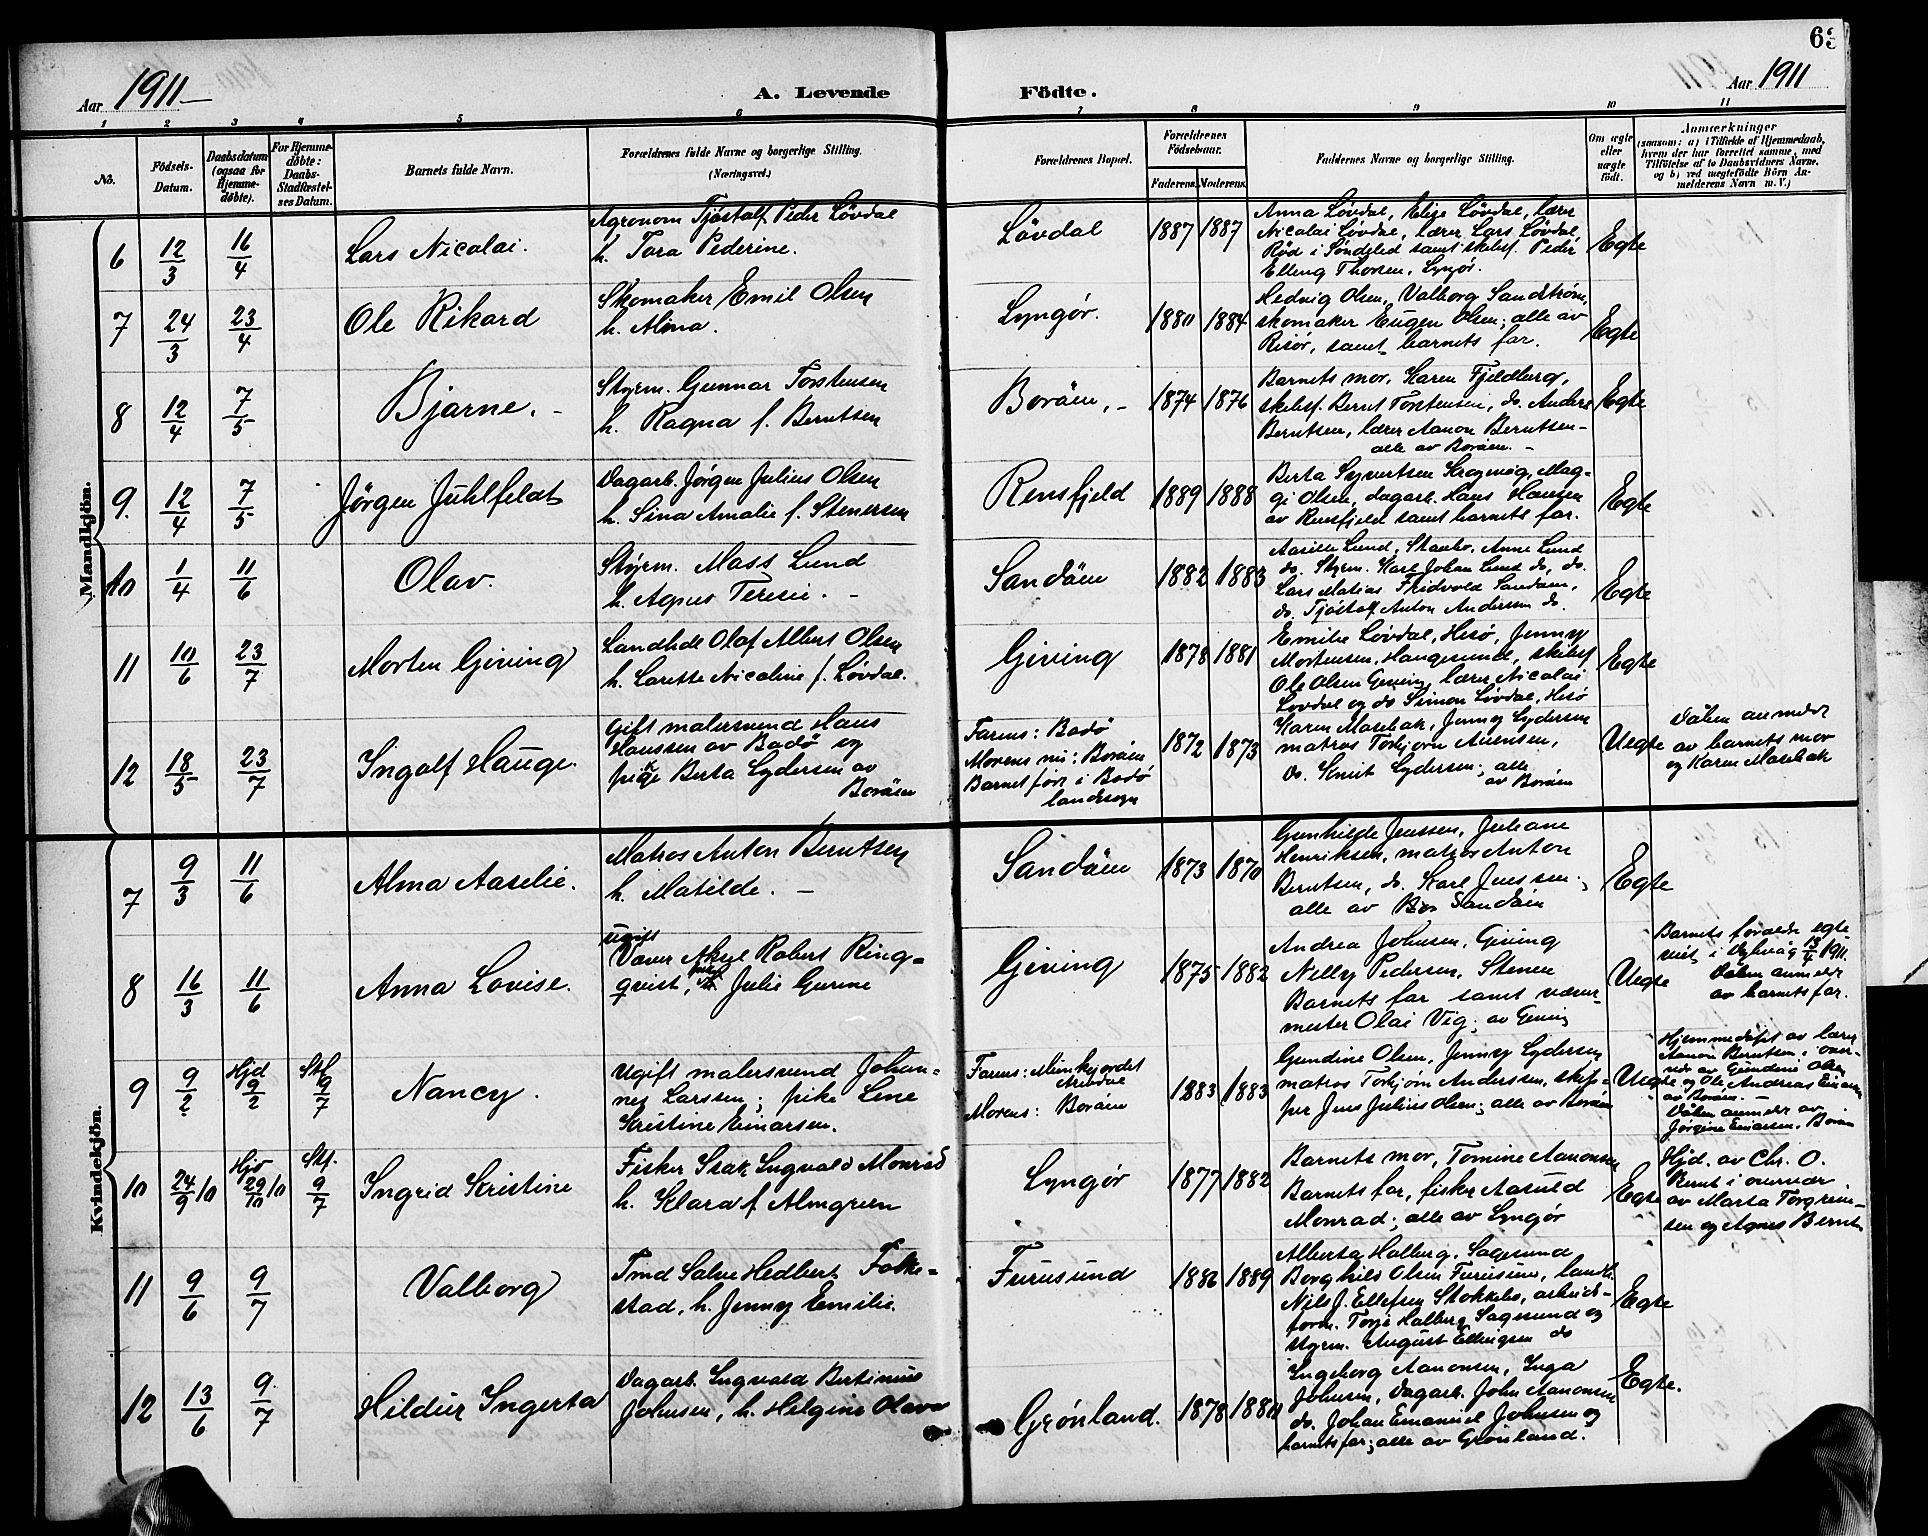 63
Aar 1911 – A. Levende Födte. Aar 1911
1 2 3 4 5 6 7 8 9 10 11
No.
Födsels-Datum.
Daabsdatum (ogsaa for Hjemmedøbte).
For Hjemmedøbte: Daabs-Stadfæstelses Datum.
Barnets fulde Navn.
Forældrenes fulde Navne og borgerlige Stilling. (Næringsvei.)
Forældrenes Bopæl.
Forældrenes Födselsaar.
Faderens. Moderens.
Faddernes Navne og borgerlige Stilling.
Om ægte eller uægte födt.
Anmærkninger
(saasom: a) i Tilfælde af Hjemmedaab, hvem der har forrettet samme, med Tilföielse af to Daabsvidners Navne. og b) ved uægtefödte Börn Anmelderens Navn m. V.)
Mandkjön.
6 12/3 16/4 Lars Nicolai.
Agronom Tjøstolf Peder Lövdal
h. Tora Pederine.
Lövdal 1887 1887
Anna Lövdal, Elise Lövdal, lærer
Nicolai Lövdal, lærer Lars Lövdal,
Röd i Söndeled samt skibsf. Peder
Elling Thorsen, Lyngör.
Egte
7 24/3 23/4 Ole Rikard
Skomaker Emil Olsen
h. Alma.
Lyngör. 1880 1884
Hedvig Olsen, Valborg Sandström,
skomaker Eugen Olsen; alle av
Risör, samt barnets far.
Egte
8 12/4 7/5 Bjarne. –
Styrm. Gunnar Torstensen
h. Ragna f. Berntsen
Boröen, – 1874 1876
Barnets mor, Karen Fjeldberg,
skibsf. Bernt Torstensen, do. Anders
Berntsen, lærer Aanon Berntsen –
alle av Boröen. –
Egte
9. 12/4 7/5 Jörgen Juhlfeldt
Dagarb. Jörgen Julius Olsen
h. Sina Amalie f. Stenersen
Rensfjeld 1889 1888
Berta Syvertsen Krogvåg, Mag-
gi Olsen, dagarb. Hans Hansen
av Rensfjeld samt barnets far.
Egte
10 1/4 11/6 Olav.
Styrm. Mass Lund
h. Agnes Teresie. –
Sandöen 1882 1883
Aasille Lund, Staubo, Anne Lund
do. Styrm. Karl Johan Lund do, do.
Lars Matias Fridvold Sandöen,
do. Tjöstolf Anton Andersen do.
Egte
11 10/6 23/7 Morten Gjeving
Landhdl. Olaf Albert Olsen
h. Larette Nicoline f. Lövdal.
Gjeving 1878 1881
Emilie Lövdal, Hisö, Jenny
Mortensen, Haugesund, skibsf.
Ole Olsen Gjeving, lærer Nicolai
Lovdal og do Simon Lövdal, Hisö
Egte
12 18/5 23/7 Ingolf Hauge.
Gift malersvend Hans
Hanssen av Bodö og
pike Berta Lydersen av
Boröen
Farens: Bodö
Morens nu: Boröen
Barnet föt i Bodö
landsogn
1872 1873
Karen Marebak, Jenny Lydersen
matros Torbjörn
do. Knut Lydersen; alle
av Boröen
Uegte
Dåben anmeldt
av barnets mor
og Karen Marebak
Kvindekjön.
7 9/3 11/6 Alma Aaselie.
Matros Anton Berntsen
h. Matilde. –
Sandöen 1873 1870
Gunhilde Jenssen, Juliane
Henriksen, matros Anton
Berntsen, do. Karl Jenssen;
alle av Sandöen
Egte
8 16/3 11/6 Anna Lovise.
ugift
Væver Robert Ring-
qvist, Julie Gurine
Gjeving 1875 1882
Andrea Johnsen, Gjeving
Nelly Pedersen, Stenen
Barnets far samt væver-
mester Olai Vig; av Gjeving
Uegte
Barnets foreldre egte-
viet i Dybvåg 13/4 1911.
Dåben anmeldt
av barnets far.
9 9/2 Hjd 9/2 Stf 9/7 Nancy.
Ugift malersvend Johan-
nes Larssen; pike Lene
Kristine Einarsen.
Farens: Munkejordet
Arendal
Morens: Boröen
1883 1883
Gundine Olsen, Jenny Lydersen
matros Torbjørn Anderssen, skip-
per Jens Julius Olsen; alle av Boröen
Uegte
Hjemmedöpt av lærer
Aanon Berntsen i over-
vær av Gundine Olsen
og Ole Andreas Einarsen
av Boröen. –
Dåben anmeldt av
Jörgine Einarsen, Boröen
10 24/9 10 Hjd 29/10 10 Stf. 9/7 Ingrid Kristine
Fisker Isak Ingvald Monrad
h. Klara f. Almgreen
Lyngör 1877 1882
Barnets mor, Tomine Aanonsen
Barnets far, fisker Aasuld
Monrad; alle av Lyngör
Egte
Hjd. av Chr. O.
Bernt i overvær
av Marta Torgrim-
sen og Agnes Berntsen
11 9/6 9/7 Valborg
Tmd Salve Hedbert Folke-
stad, h. Jenny Emilie.
Furusund 1886 1889
Alberta Holberg, Sagesund
Borghild Olsen Furusund, landb.
Nils J. Ellefsen Stokkebo, arbeids-
form. Terje Halberg Sagesund og
styrm. August Ellingsen do
Egte
12 13/6 9/7 Hildur Ingerta
Dagarb. Ingvald Bertinius
Johnsen, h. Helgine Olava
Grönland. 1878 1880
Ingeborg Aanonsen, Inga
Johnsen, Dagarb. John Aanonsen
do. Johan Emanuel Johnsen og
barnets far; alle av Grönland.
Egte.